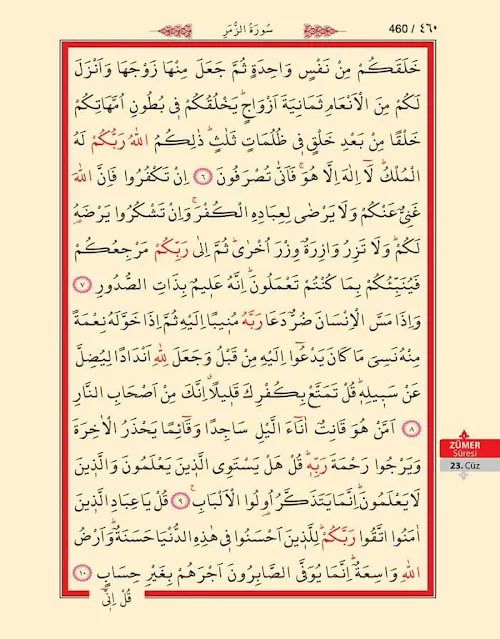 سُورَةُ الزُّمَرِ
460 / ٤٦٠
خَلَقَكُمْ مِنْ نَفْسٍ وَاحِدَةٍ ثُمَّ جَعَلَ مِنْهَا زَوْجَهَا وَاَنْزَلَ
لَكُمْ مِنَ الْاَنْعَامِ ثَمَانِيَةَ اَزْوَاجٍۜ يَخْلُقُكُمْ ف۪ي بُطُونِ اُمَّهَاتِكُمْ
خَلْقًا مِنْ بَعْدِ خَلْقٍ ف۪ي ظُلُمَاتٍ ثَلٰثٍۜ ذٰلِكُمُ اللّٰهُ رَبُّكُمْ لَهُ
الْمُلْكُۜ لَٓا اِلٰهَ اِلَّا هُوَۚ فَاَنّٰى تُصْرَفُونَ ﴿٦﴾ اِنْ تَكْفُرُوا فَاِنَّ اللّٰهَ
غَنِيٌّ عَنْكُمْ وَلَا يَرْضٰى لِعِبَادِهِ الْكُفْرَۚ وَاِنْ تَشْكُرُوا يَرْضَهُ
لَكُمْۜ وَلَا تَزِرُ وَازِرَةٌ وِزْرَ اُخْرٰىۜ ثُمَّ اِلٰى رَبِّكُمْ مَرْجِعُكُمْ
فَيُنَبِّئُكُمْ بِمَا كُنْتُمْ تَعْمَلُونَۜ اِنَّهُ عَل۪يمٌ بِذَاتِ الصُّدُورِ ﴿٧﴾
وَاِذَا مَسَّ الْاِنْسَانَ ضُرٌّ دَعَا رَبَّهُ مُن۪يبًا اِلَيْهِ ثُمَّ اِذَا خَوَّلَهُ نِعْمَةً
مِنْهُ نَسِيَ مَا كَانَ يَدْعُٓوا اِلَيْهِ مِنْ قَبْلُ وَجَعَلَ لِلّٰهِ اَنْدَادًا لِيُضِلَّ
عَنْ سَب۪يلِه۪ۜ قُلْ تَمَتَّعْ بِكُفْرِكَ قَل۪يلًاۗ اِنَّكَ مِنْ اَصْحَابِ النَّارِ
﴿٨﴾ اَمَّنْ هُوَ قَانِتٌ اٰنَٓاءَ الَّيْلِ سَاجِدًا وَقَٓائِمًا يَحْذَرُ الْاٰخِرَةَ
وَيَرْجُوا رَحْمَةَ رَبِّه۪ۜ قُلْ هَلْ يَسْتَوِي الَّذ۪ينَ يَعْلَمُونَ وَالَّذ۪ينَ
لَا يَعْلَمُونَۜ اِنَّمَا يَتَذَكَّرُ اُو۬لُوا الْاَلْبَابِ۟ ﴿٩﴾ قُلْ يَا عِبَادِ الَّذ۪ينَ
اٰمَنُوا اتَّقُوا رَبَّكُمْۜ لِلَّذ۪ينَ اَحْسَنُوا ف۪ي هٰذِهِ الدُّنْيَا حَسَنَةٌۜ وَاَرْضُ
اللّٰهِ وَاسِعَةٌۜ اِنَّمَا يُوَفَّى الصَّابِرُونَ اَجْرَهُمْ بِغَيْرِ حِسَابٍ ﴿١٠﴾
قُلْ اِنّ۪ٓي
ZÜMER
Sûresi
23. Cüz